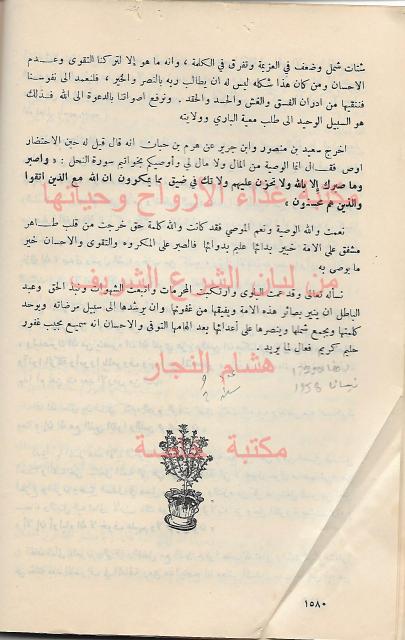 شتات شمل وضعف في العزيمة وتفرق في الكلمة ، وانه ما هو إلا لتركنا التقوى وعـــدم
الاحسان ومن كان هذا شكله ليس له ان يطالب ربه بالنصر والخير ، فلنعمد الى نفوسنا
فننقيها من ادران الفسق والغش والحسد والحقد . ونرفع اصواتنا بالدعوة الى الله فـــذلك
هو السبيل الوحيد الى طلب معية الباري وولايته
اخرج سعيد بن منصور وابن جرير عن هرم بن حيان انه قال قيل له حين الاحتضار
اوص فقـــال انما الوصية من المال ولا مال لي وأوصيكم بخواتيم سورة النحل : « واصبر
وما صبرك إلا بالله ولا تحزن عليهم ولا تك في ضيق مما يمكرون ان الله مع الذين اتقوا
والذين هم محسنون »
مكتبة غذاء الأرواح وحياتها
نعمت والله الوصية ونعم الموصي فقد كانت والله كلمة حق خرجت من قلب طـــاهر
مشفق على الامة خبير بدائها عليم بدوائها فالصبر على المكروه والتقوى والاحسان خير
ما يوصى به
من لبنان الشرع الشريف
نسأله تعالى وقد عمت البلوى وارتكبت المحرمات واتبعت الشهوات ونبذ الحق وعبد
الباطل ان ينير بصائر هذه الامة ويفيقها من غفوتها وان يرشدها الى سبيل مرضاته ويوحد
كلمتها ويجمع شملها وينصرها على أعدائها بعد الهامها التوقى والاحسان انه سميع مجيب غفور
حليم كريم فعال لما يريد .
هشام النجار
1953
مكتبة خاصة
١٥٨٠